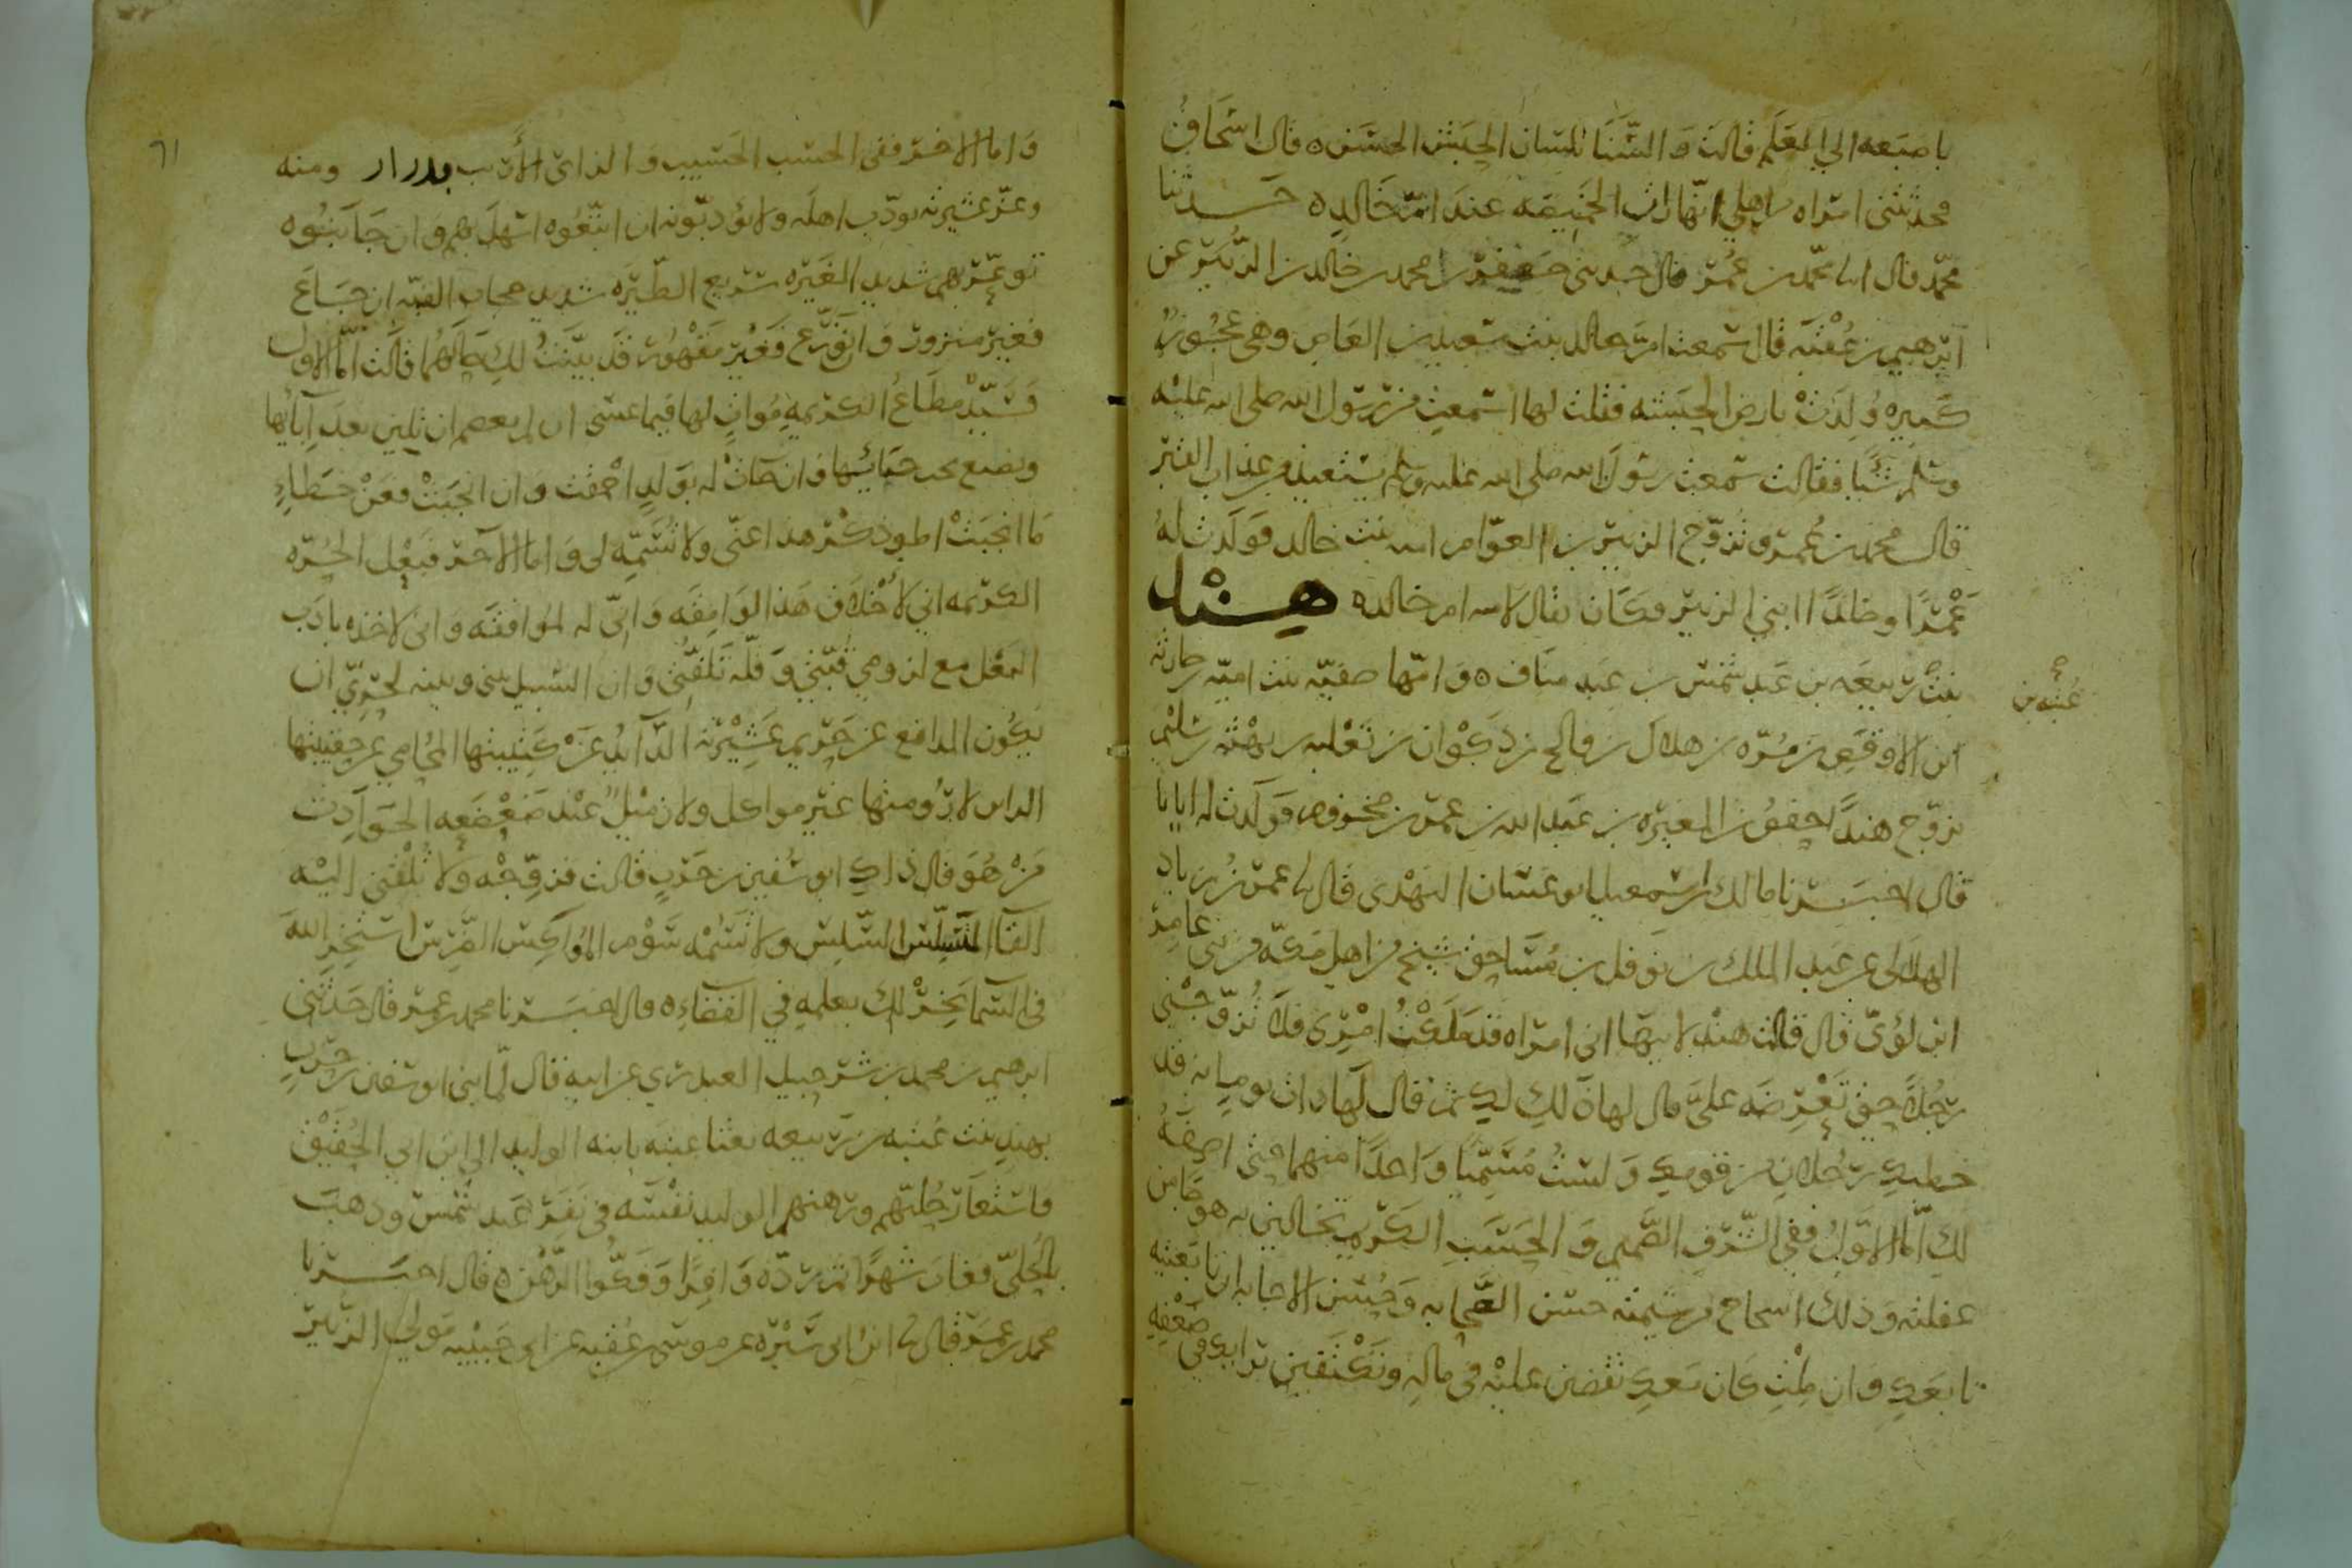 باصبعه الى العلم قالت والسنا بلسان الحبش الحسن ه قال اسحاق
فحدثتني امراه من اهلي انها رات الخميصه عند ام خالد ه حدثنا
محمد قال انا محمد بن عمر قال حدثني جعفر بن محمد بن خالد بن الزبير عن
ابرهيم بن عقبة قال سمعت ام خالد بنت سعيد بن العاص وهي عجوز
كبيره ولدت بارض الحبشه فقلت لها اسمعت من رسول الله صلى الله عليه
وسلم شيا فقالت سمعت رسول الله صلى الله عليه وسلم يستعيذ من عذاب القبر
قال محمد بن عمر وتزوج الزبير بن العوام امه بنت خالد فولدت له
عمرا وخالدا ابني الزبير وكان يقال لامه ام خالد ه هند
بنت ربيعه بن عبد شمس بن عبد مناف ه وامها صفيه بنت اميه بن حارثه
عتبه بن صح
ابن الاوقص بن مره بن هلال بن فالح بن ذكوان بن ثعلبه بن بهثه بن سليم
تزوج هندا حفص بن المغيره بن عبد الله بن عمر بن مخزوم فولدت له ابانا
قال اخبرنا مالك بن اسمعيل ابو غسان النهدي قال نا عمر بن زياد
الهلالي عن عبد الملك بن نوفل بن مساحق شيخ من اهل مكه من بني عامر
ابن لؤي قال قالت هند لابيها اني امراه قد ملكت امري فلا تزوجني
رجلا حتى تعرضه علي قال لها ذلك لك ثم قال لها ذات يوم انه قد
خطبك رجلان من قومك ولست مسميا واحدا منهما حتى اصفه
لك اما الاول ففي الشرف الصميم والحسب الكريم تخالين به هوجا من
غفلته وذلك اسجاح من شيمته حسن الصحابه وحسن الاجابه ان تابعتيه
تابعك وان ملت كان معك تقضين عليه في ماله وتكتفين برايك في ضعفه
٦١
واما الاخر ففي الحسب الحسيب والراي الاريب بدر ار ومنه
وعز عشيرته يودب اهله ولا يؤدبونه ان اتبعوه اسهل بهم وان جانبوه
توعر بهم شديد الغيره سريع الطيره شديد حجاب القبه ان جاع
فغير منزور وان توزع فغير مقهور قد بينت لك حالهما قالت اما الاول
فسيد مطاع لكريمه موات لها فيما عسى ان لم يعصم ان تلين بعد ابايها
وتضيع تحت خبائها وان جات له بولد احمقت وان انجبت فعن خطاء
ما انجبت اطو ذكر هذا عني ولا تسمه لي واما الاخر فبعل الحره
الكريمه اني لاخلاق هذا لوامقه واني له لموافقه واني لاخذه بادب
البعل مع لزومي قبتي وقله تلفتي وان السليل بيني وبينه لحري ان
يكون المدافع عن حريم عشيرته الذائد عن كتيبتها المحامي عن حقيقتها
الراس لارومتها غير مواكل ولا زميل عند ضعضعه الحوادث
من هو قال ذاك ابو سفين بن حرب قالت فزوجه ولا تلقني اليه
القا المسلس السلس ولا تسمه سوم المواكس الضرس استخر الله
في السما يخر لك بعلمه في القضاء ه قال اخبرنا محمد بن عمر قال حدثني
ابرهيم بن محمد بن شرحبيل العبدري عن ابيه قال لما بنى ابو سفين بن حرب
بهند بنت عتبه بن ربيعه بعثنا عتبه بابنه الوليد الى ابن ابي الحقيق
فاستعار حليهم ورهنهم الوليد نفسه في نفر عبد شمس وذهب
بالحلي فغاب شهرا ثم رده وافرا وفكوا الرهن ه قال اخبرنا
محمد بن عمر قال نا ابن ابي سبره عن موسى بن عقبه عن ابي حبيبه مولى الزبير